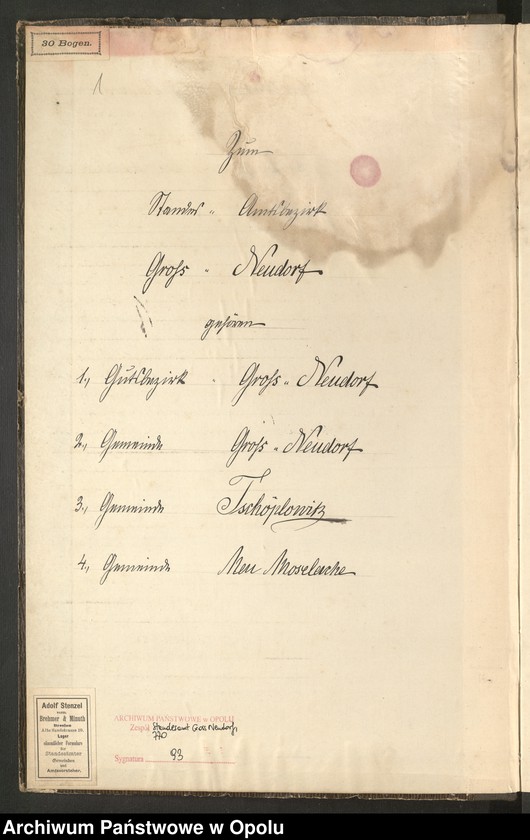 30 Bogen.
1
Zum
Standes " Amtsbezirk
Groß " Neudorf
gehören
1., Gutsbezirk " Groß " Neudorf
2., Gemeinde Groß " Neudorf
3., Gemeinde Tschöplowitz
4., Gemeinde Neu Moselache
Adolf Stenzel
vorm.
Brehmer & Minuth
Breslau
Lager
sämmtlicher Formulare
für
Standesämter
Gemeinden
und
Amtsvorsteher.
ARCHIWUM PAŃSTWOWE w OPOLU
Zespół Standesamt Gross Neudorf
770
Sygnatura 93
Archiwum Państwowe w Opolu